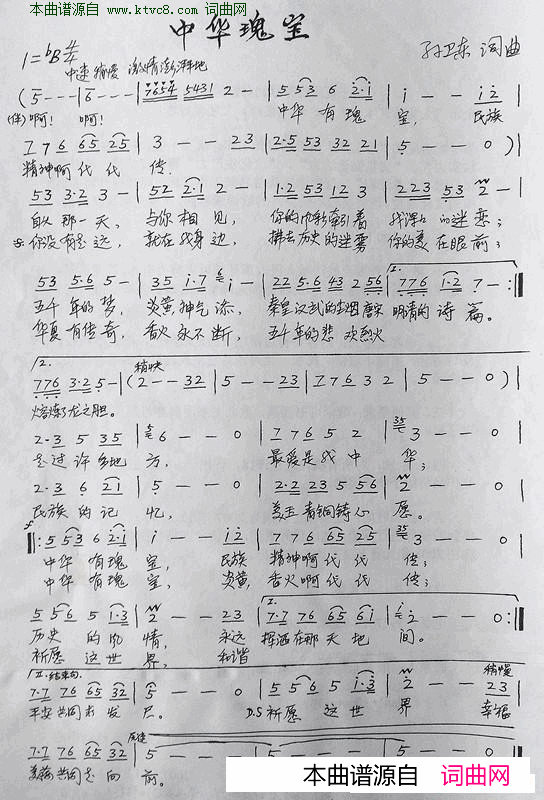 本曲谱源自 www.ktvc8.com 词曲网
中华瑰宝
1=bB 4/4
中速稍慢 激情澎湃地
孙卫东 词曲
(5 - - - | 6 - - - | 7654 5431 2 - | 553 6 2·1 | 1 - - 12
(伴)啊! 啊! 中华有瑰宝, 民族
7 7 6 65 25 | 3 - - 23 | 2·5 53 32 21 | 5 - - 0 )
精神啊代代传.
53 3·2 3 - | 52 2·1 2 - | 1·2 53 12 3 | 223 53 2 -
自从那一天, 与你相见, 你的 牵引着 我 的迷恋;
你没有走远, 就在我身边, 拂去历史的迷雾 你的美在眼前;
53 5·6 5 - | 35 1·7 6 1 - | 22 5·6 43 2 56 | 1. 776 1·2 7 - :||
五千年的梦, 炎黄神气添, 秦皇汉武的 唐宋 明清的诗篇。
华夏有传奇, 香火永不断, 五千年的悲欢烈火
2. 稍快
776 3·2 5 - | (2 - - 32 | 5 - - 23 | 7 7 6 3 2 | 5 - - 0)
熔炼了龙之胆。
2·3 5 35 | 5 6 - - 0 | 7 7 6 5 2 | 35 3 - - 0
走过许多地方, 最爱是我中华;
2·3 6 21 | 5 - - 0 | 2·2 23 5 56 | 2 - - 0
民族的记忆, 美玉青铜铸心愿。
||: 5 53 6 2·1 | 1 - - 12 | 7 7 6 65 25 | 35 3 - - 0
中华有瑰宝, 民族精神啊代代传;
中华有瑰宝, 炎黄香火啊代代传;
5 56 5 1·3 | 2 - - 23 | 1. 7·7 76 65 61 | 1 2 - - 0 :||
历史的风情, 永远挥洒在那天地间。
祈愿这世界, 和谐
II.结束句
7·7 76 65 32 | 5 - - 0 | 5 56 5 1·3 | 2 - - 稍慢 23
平安共同求发展。 D.S祈愿这世界 幸福
7·7 76 65 32 | 5 - - - | 5 - - - | 5 - -
美满共同走向前。
本曲谱源自 词曲网